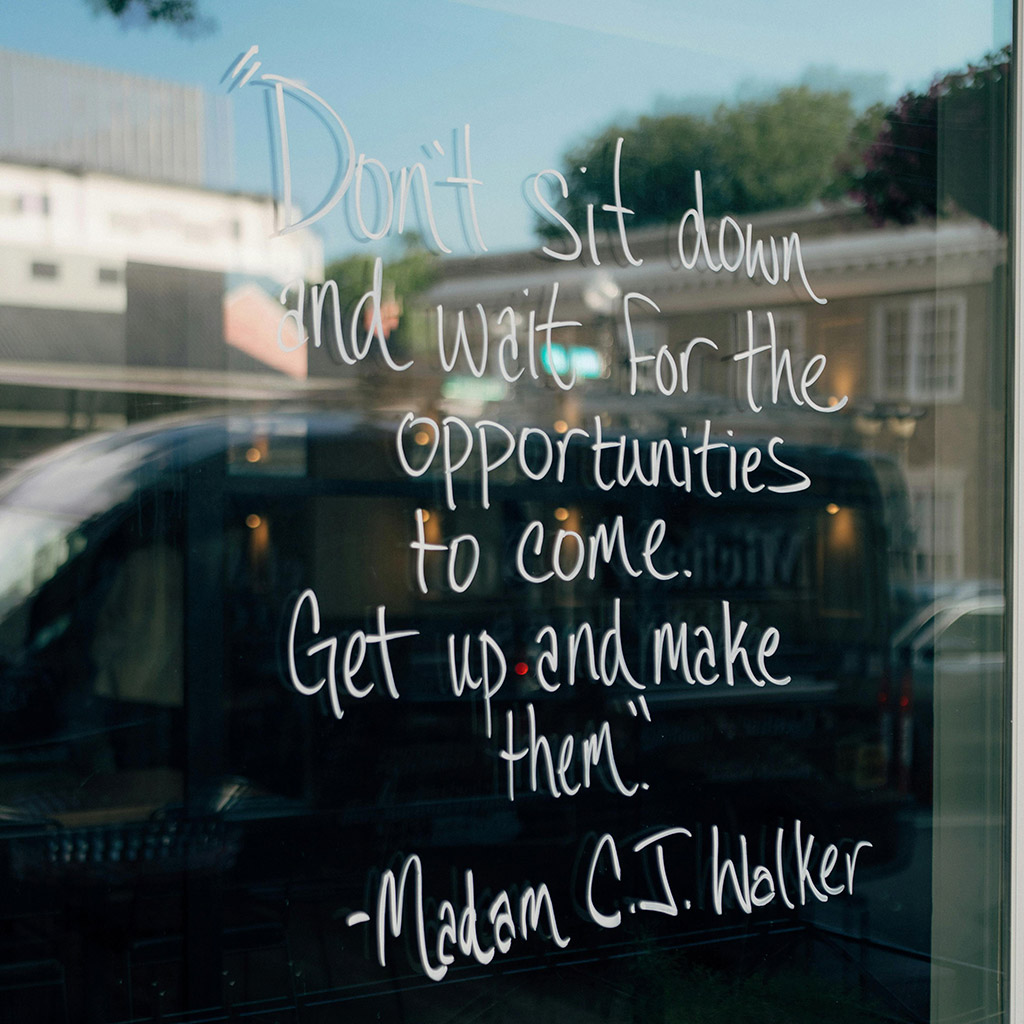 "Don't sit down
and wait for the
opportunities
to come.
Get up and make
them".
-Madam C.J. Walker